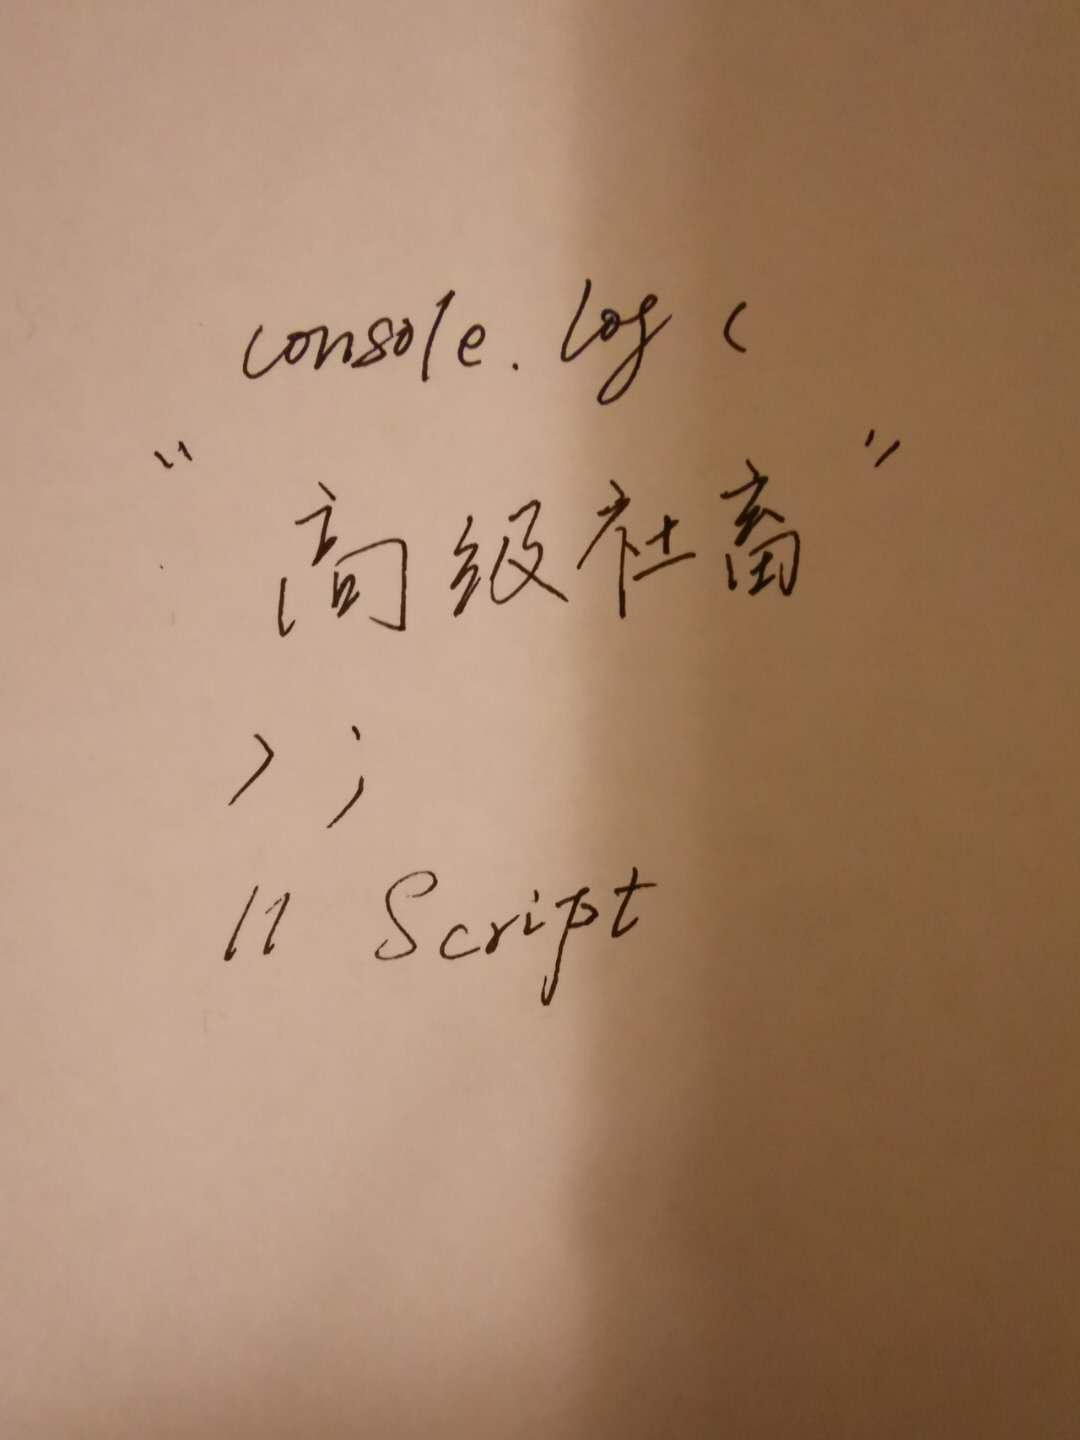 console.log(
"高级社畜"
);
// Script